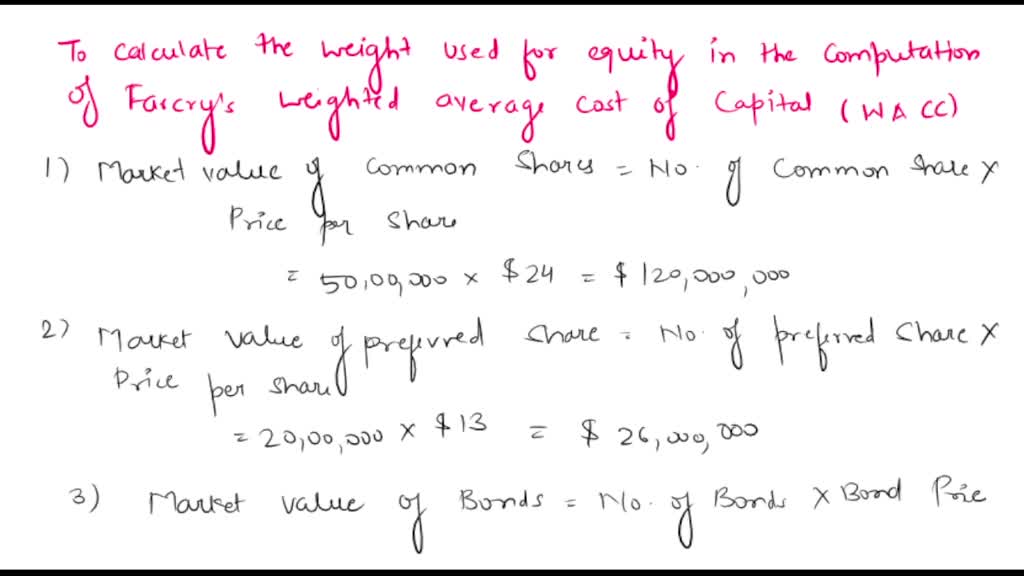 To calculate the weight used for equity in the computation
of Farcry's weighted average cost of Capital (WACC)
1) Market value of Common Shares = No. of Common share X
Price per share
= 50,00,000 x $24 = $120,000,000
2) Market value of preferred share = No. of preferred share X
Price per share
= 20,00,000 X $13 = $ 26,000,000
3) Market value of Bonds = No. of Bonds X Bond Price